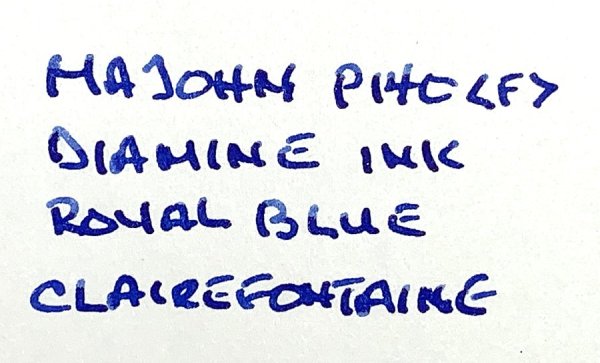 MAJOHN P140 <F>
DIAMINE INK
ROYAL BLUE
CLAIREFONTAINE